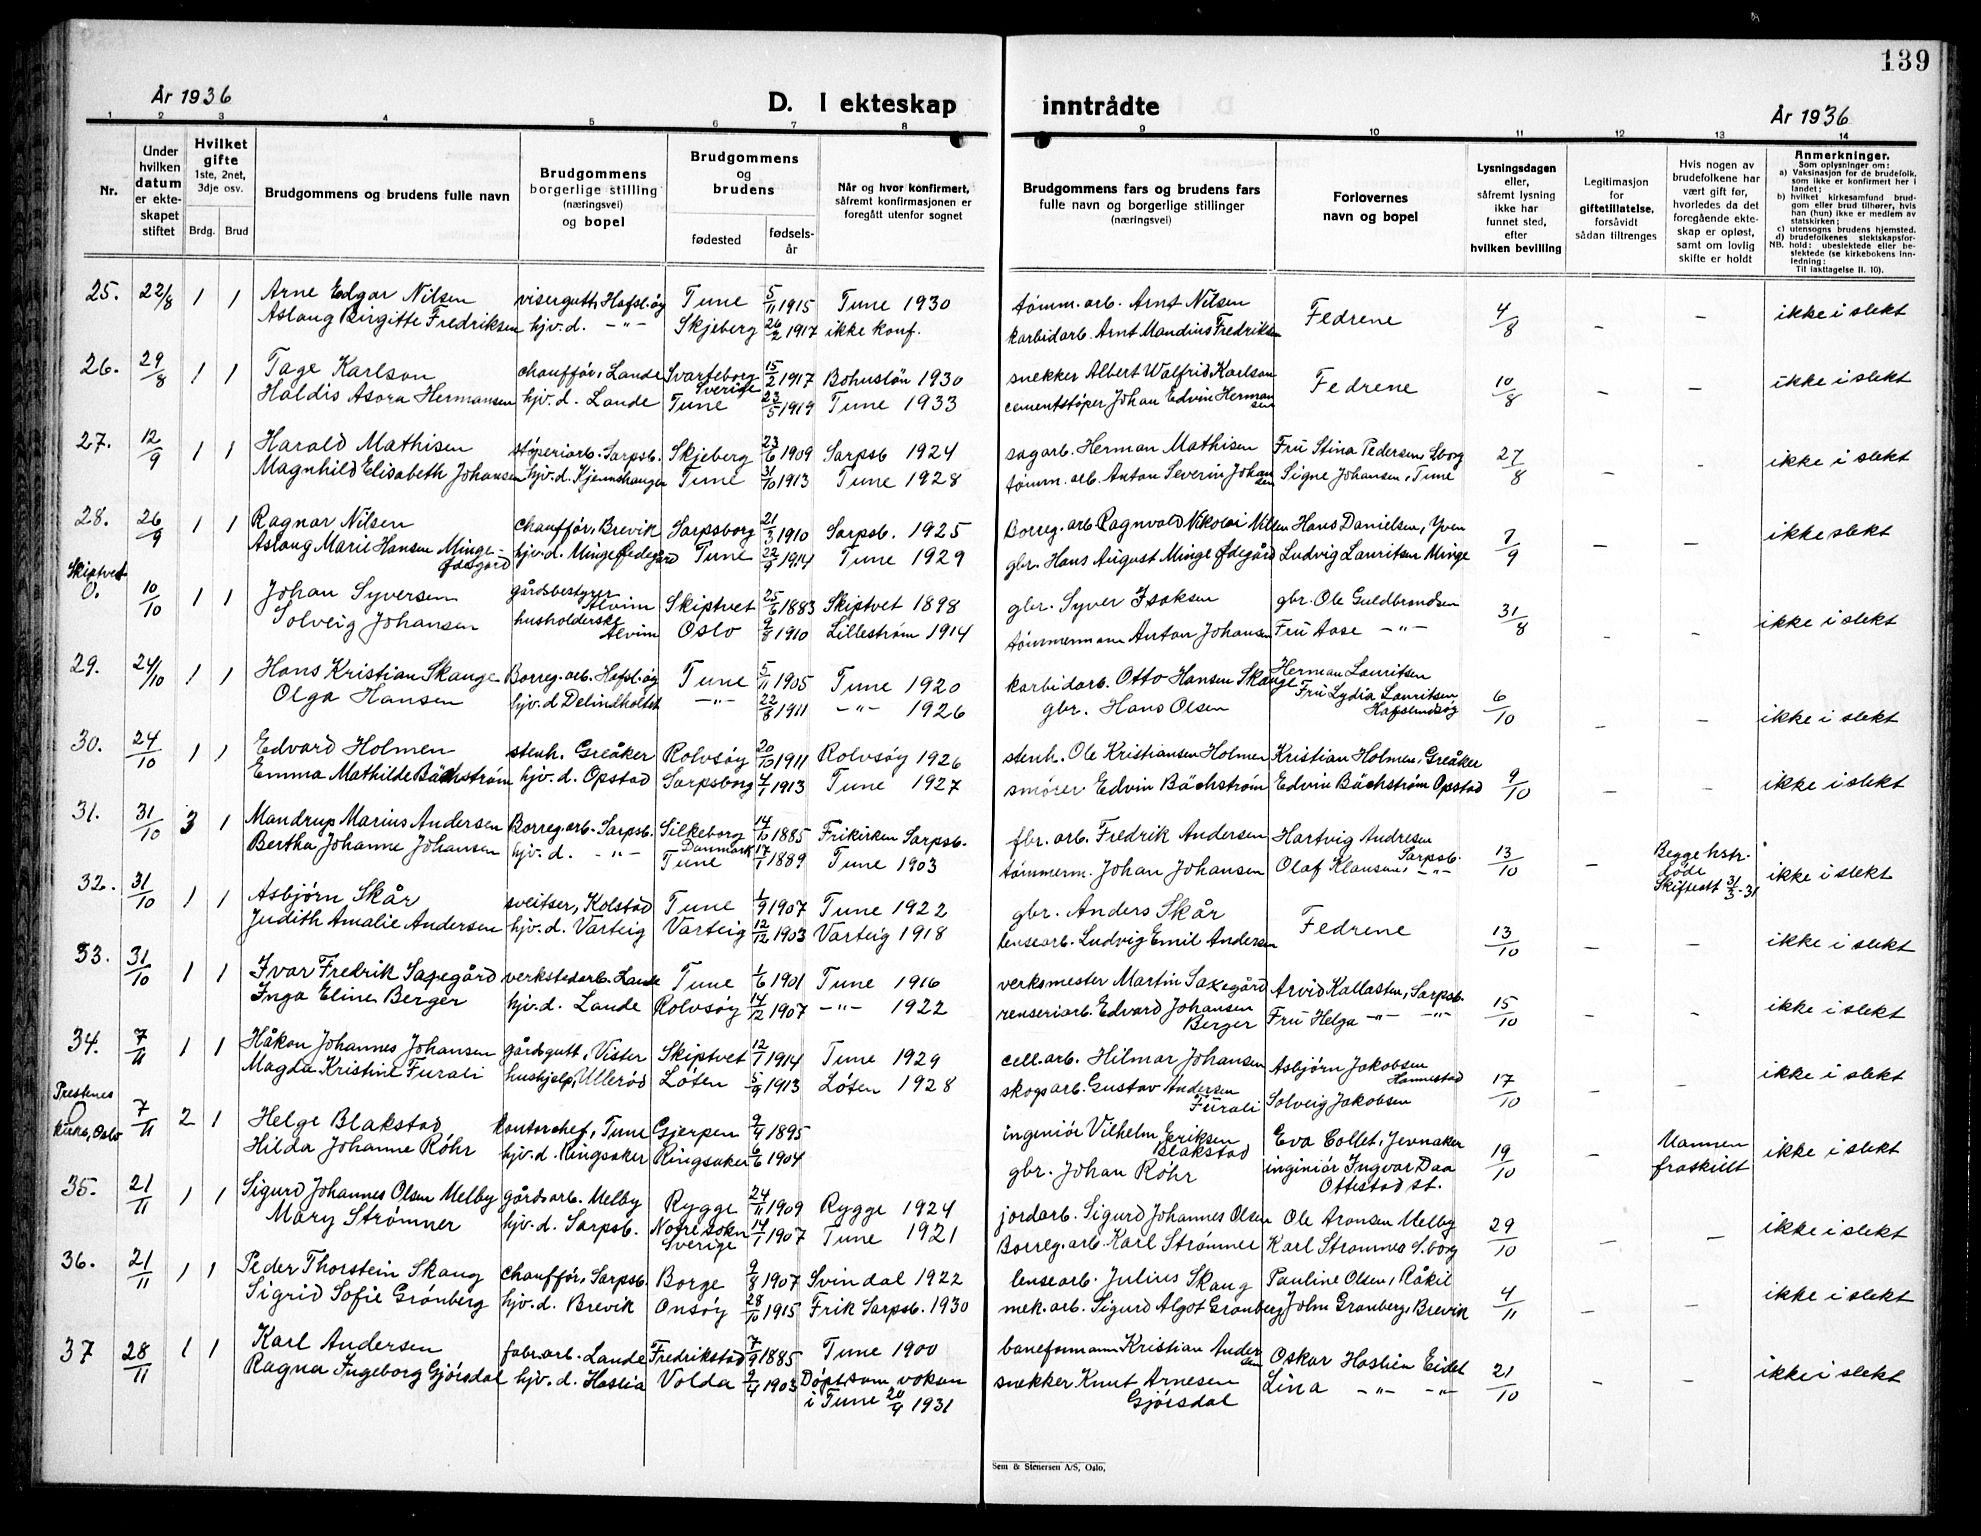 139
År 1936
D. I ekteskap inntrådte
År 1936
1 2 3 4 5 6 7 8 9 10 11 12 13 14
Nr.
Under hvilken datum er ekteskapet stiftet
Hvilket gifte 1ste, 2net, 3dje osv.
Brdg. Brud
Brudgommens og brudens fulle navn
Brudgommens borgerlige stilling (næringsvei) og bopel
Brudgommens og brudens
fødested
fødselsår
Når og hvor konfirmert, såfremt konfirmasjonen er foregått utenfor sognet
Brudgommens fars og brudens fars fulle navn og borgerlige stillinger (næringsvei)
Forlovernes navn og bopel
Lysningsdagen eller, såfremt lysning ikke har funnet sted, efter hvilken bevilling
Legitimasjon for giftetillatelse, forsåvidt sådan tiltrenges
Hvis nogen av brudefolkene har vært gift før, hvorledes da det foregående ekteskap er opløst, samt om lovlig skifte er holdt
Anmerkninger.
Som oplysninger om:
a) Vaksinasjon for de brudefolk, som ikke er konfirmert her i landet;
b) hvilket kirkesamfund brudgom eller brud tilhører, hvis han (hun) ikke er medlem av statskirken;
c) utensogns brudens hjemsted.
d) brudefolkenes slektskapsforhold: ubeslektede eller beslektede (se kirkebokens innledning:
Til iakttagelse II. 10).
25. 22/8 1 1 Arne Edgar Nilsen visergutt, Hafsl.øy Tune 5/11 1915 Tune 1930 tømm. arb. Arnt Nilsen Fedrene 4/8 – – ikke i slekt
Aslaug Birgitte Fredriksen hjv.d. -"- Skjeberg 26/2 1917 ikke konf. karbidarb. Arnt Mandius Fredriksen
26. 29/8 1 1 Tage Karlson chauffør, Lande Svarteborg Sverige 15/2 1917 Bohuslän 1930 snekker Albert Walfrid Karlson Fedrene 10/8 – – ikke i slekt
Haldis Asora Hermansen hjv.d. Lande Tune 23/5 1919 Tune 1933 cementstøper Johan Edvin Hermansen
27. 12/9 1 1 Harald Mathisen støperiarb. Sarpsb. Skjeberg 23/6 1909 Sarpsb 1924 sagarb. Herman Mathisen Fru Stina Pedersen, Sborg 27/8 – – ikke i slekt
Magnhild Elisabeth Johansen hjv.d. Kjennshaugen Tune 31/10 1913 Tune 1928 tømm. arb. Anton Severin Johansen Signe Johansen, Tune
28. 26/9 1 1 Ragnar Nilsen chauffør, Brevik Sarpsborg 21/3 1910 Sarpsb. 1925 Borreg. arb. Ragnvald Nikolai Nilsen Hans Danielsen, Yven 7/9 – – ikke slekt
Aslaug Marie Hansen Minge-Ødegård hjv.d. Minge Ødegård Tune 1914 Tune 1929 gbr. Hans August Minge Ødegård Ludvig Lauritsen Minge
Skiptvet
0. 10/10 1 1 Johan Syversen gårdsbestyrer Alvim Skiptvet 25/6 1883 Skiptvet 1898 gbr. Syver Isaksen gbr. Ole Guldbrandsen 31/8 – – ikke i slekt
Solveig Johansen husholderske Alvim Oslo 9/8 1910 Lillestrøm 1914 tømmermann Anton Johansen Fru Aase -"-
29. 24/10 1 1 Hans Kristian Skauge Borreg. arb. Hafsl.øy Tune 5/11 1905 Tune 1920 karbidarb. Otto Hansen Skauge Herman Lauritsen 6/10 – – ikke i slekt
Olga Hansen hjv.d Delindholtet -"- 22/8 1911 -"- 1926 gbr. Hans Olsen Fru Lydia Lauritsen Hafslundsøy
30. 24/10 1 1 Edvard Holmen stenh. Greåker Rolvsøy 20/10 1911 Rolvsøy 1926 stenh. Ole Kristiansen Holmen Kristian Holmen, Greåker 9/10 – – ikke i slekt
Emma Mathilde Bäckstrøm hjv.d. Opstad Sarpsborg 4/1 1913 Tune 1927 smører Edvin Bächstrøm Edvin Bächstrøm Opstad
31. 31/10 3 1 Mandrup Marius Andersen Borreg. arb. Sarpsb. Silkeborg Danmark 14/10 1885 Frikirken Sarpsb. fbr. arb. Fredrik Andersen Hartvig Andresen Sarpsb. 13/10 – Begge hstr. døde Skifteatt 31/3-31 ikke i slekt
Bertha Johanne Johansen hjv.d. -"- Tune 17/1 1889 Tune 1903 tømmerm. Johan Johansen Olaf Klausen, -"-
32. 31/10 1 1 Asbjørn Skår sveitser, Kolstad Tune 1/9 1907 Tune 1922 gbr. Anders Skår Fedrene 13/10 – – ikke i slekt
Judith Amalie Andersen hjv.d. Varteig Varteig 12/12 1903 Varteig 1918 lensearb. Ludvig Emil Andersen
33. 31/10 1 1 Ivar Fredrik Saxegård verkstedarb. Lande Tune 1/6 1901 Tune 1916 verksmester Martin Saxegård Arvid Kallasten, Sarpsb. 15/10 – – ikke i slekt
Inga Eline Berger hjv.d. Lande Rolvsøy 14/12 1907 -"- 1922 renseriarb. Edvard Johansen Berger Fru Helga -"- -"-
34. 7/11 1 1 Håkon Johannes Johansen gårdsgutt, Vister Skiptvet 12/1 1914 Tune 1929 cell.arb. Hilmar Johansen Asbjørn Jakobsen Hannestad 17/10 – – ikke i slekt
Magda Kristine Furali hushjelp, Ullerød Løten 5/9 1913 Løten 1928 skogsarb. Gustav Andersen Furali Solveig Jakobsen
Prestenes
0 kirke, Oslo 7/11 2 1 Helge Blakstad kontorchef, Tune Gjerpen 9/4 1895 ingeniør Vilhelm Eriksen Blakstad Eva Collet, Jevnaker 19/10 – Mannen fraskilt ikke i slekt
Hilda Johanne Röhr hjv.d. Ringsaker Ringsaker 6/6 1904 gbr. Johan Röhr inginiør Ingvar Daa Ottestad st.
35. 21/11 1 1 Sigurd Johannes Olsen Melby gårdsarb. Melby Rygge 24/11 1909 Rygge 1924 jordarb. Sigurd Johannes Olsen Ole Aronsen Melby 29/10 – – ikke i slekt
Mary Strømner hjv.d. Sarpsb. Sverige 14/1 1907 Tune 1921 Borreg. arb. Karl Strømner Karl Strømnes S.borg
36. 21/11 1 1 Peder Thorstein Skaug chauffør, Sarpsb. Borge 9/8 1907 Svindal 1922 lensearb. Julius Skaug Pauline Olsen, Råkil 4/11 – – ikke i slekt
Sigrid Sofie Grønberg hjv.d. Brevik Onsøy 28/10 1915 Frik Sarpsb. 1930 mek. arb. Sigurd Algot Grønberg John Grønberg, Brevik
37 28/11 1 1 Karl Andersen fabr.arb. Lande Fredrikstad 7/9 1885 Tune 1900 baneformann Kristian Andersen Oskar Haslien Eidet 21/10 – – ikke i slekt
Ragna Ingeborg Gjørsdal hjv.d. Haslia Volda 9/4 1903 Døpt som voksen i Tune 20/9 1931 snekker Knut Arnesen Gjørsdal Lina -"- -"-
Sem & Stenersen A/S, Oslo.